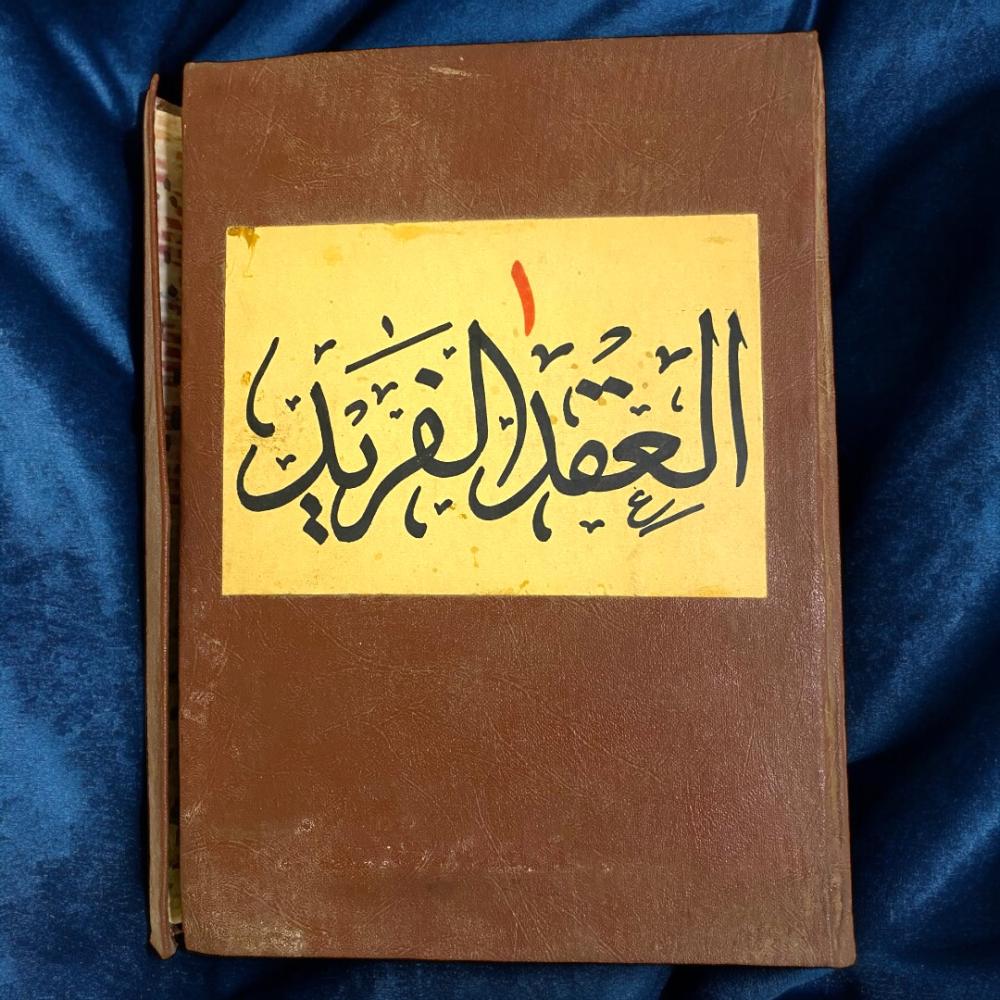 ١
العقد الفريد